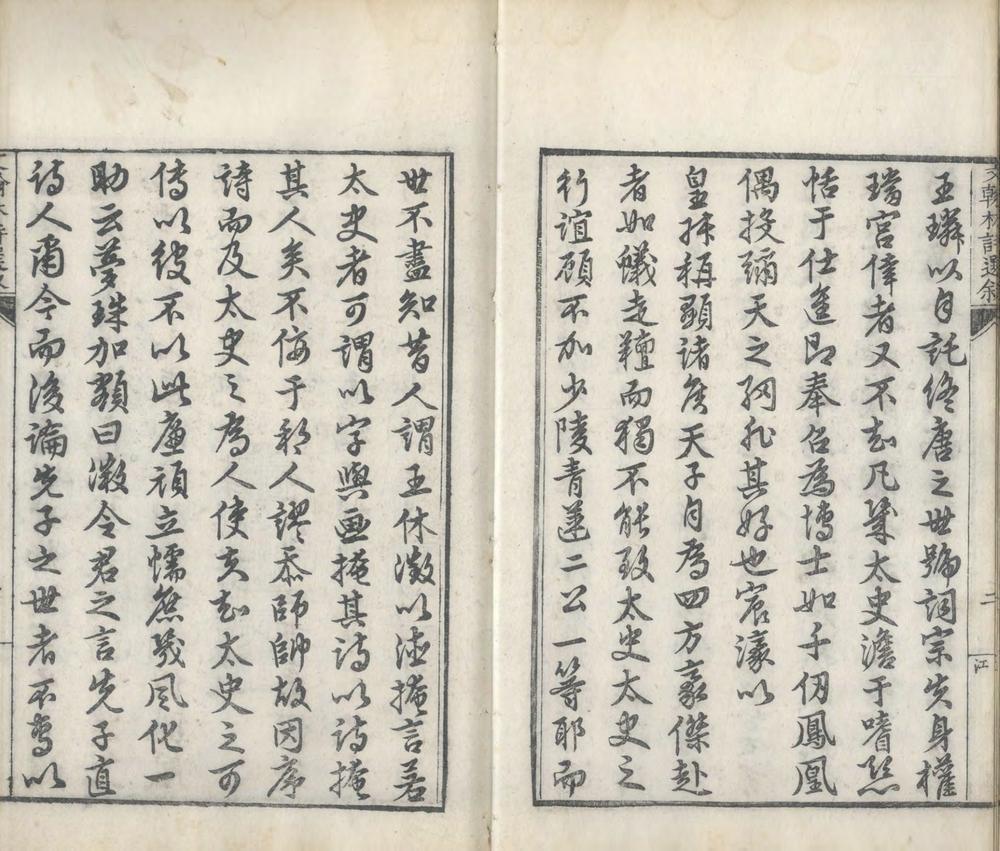 文翰林詩選叙
二
江
王璘以自託終唐之世號詞宗失身權
璫宮偉者又不知凡幾太史澹于嗜慾
恬于仕進即奉召為博士如千仞鳳凰
偶投彌天之網非其好也宸濠以
皇孫稱顯諸矦天子自為四方豪傑赴
者如蟻走羶而獨不能致太史太史之
行誼顧不加少陵青蓮二公一等耶而
世不盡知昔人謂王休徵以德掩言若
太史者可謂以字與画掩其詩以詩掩
其人矣不佞于郡人謬忝師帥故因序
詩而及太史之為人使夫知太史之可
傳以彼不以此廉頑立懦庶幾風化一
助云夢珠加額曰微令君之言先子直
詩人爾今而後論先子之世者不當以